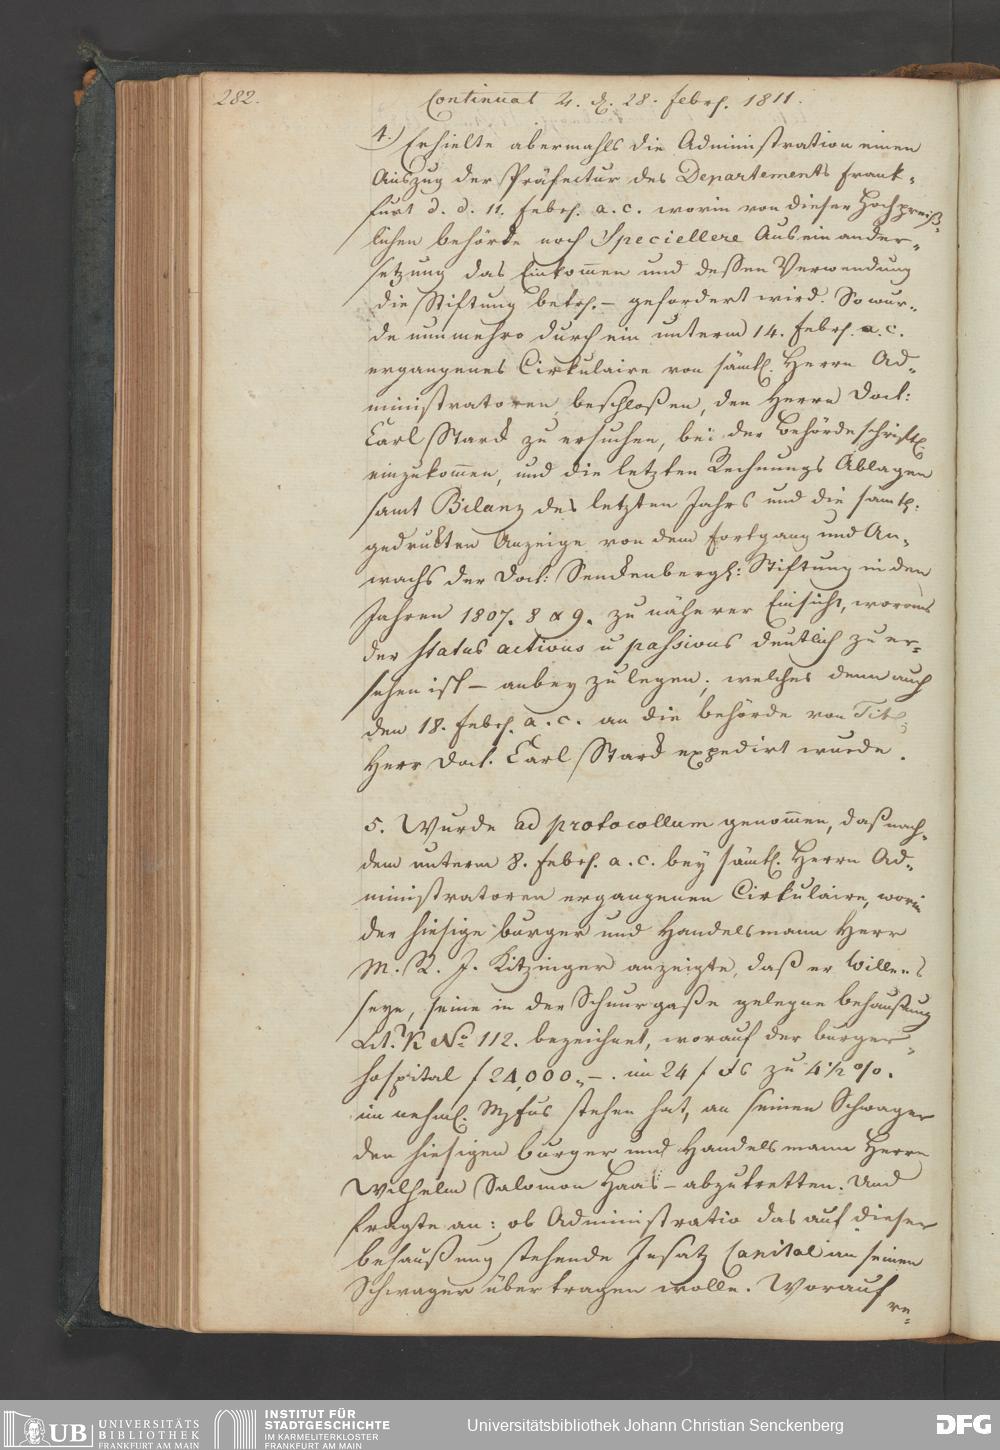 282.
Continuat 4. d. 28. Febr. 1811.
4.) Erhielte abermahls die Administration einen
Auszug der Präfectur des Departements Frank-
furt d. d. 11. Febr. a. c. worin von dieser Hochpreiß-
lichen behörde noch Speciellere Ausein ander-
setzung das Einkommen und deßen Verwendung
die Stiftung betr. – gefordert wird. So wur-
de nunmehro durch ein unterm 14. Febr. a. c.
ergangenes Cirkulaire von sämtl. Herrn Ad-
ministratoren beschloßen, den Herrn Doct:
Carl Stard zu ersuchen, bei der Behörde schriftl.
einzukommen, und die letzten Rechnungs Ablagen
samt Bilanz des letzten Jahrs und die sämtl.
gedruckten Anzeige von dem Fortgang und An-
wachs der Doct: Senckenbergl: Stiftung in den
Jahren 1807. 8 & 9. zu näherer Einsicht, woraus
der Status activus u passivus deutlich zu er-
sehen ist – anbey zu legen; welches denn auch
den 18. Febr. a. c. an die behörde von Titl:
Herr Doct. Carl Stard expedirt wurde.
5. Wurde ad protocollum genommen, daß nach-
dem unterm 8. Febr. a. c. bey sämtl. Herrn Ad-
ministratoren ergangenen Cirkulaire, worin
der hiesige burger und Handelsmann Herr
M. R. J. Kitzinger anzeigte, daß er Willens
seye, seine in der Schnurgaße gelegne behaußung
Lit. K No 112. bezeichnet, worauf der burger-
hospital f 24,000.,–. im 24 f fs zu 4 1/2 %.
im nehml. stehen hat, an seinen Schwager
den hiesigen burger und Handelsmann Herrn
Wilhelm Salomon Haas – abzutretten. Und
fragte an: ob Administratio das auf dieser
behaußung stehende Insatz Capital an seinen
Schwager über tragen wolle. Worauf
re-
UB UNIVERSITÄTS
BIBLIOTHEK
FRANKFURT AM MAIN
INSTITUT FÜR
STADTGESCHICHTE
IM KARMELITERKLOSTER
FRANKFURT AM MAIN
Universitätsbibliothek Johann Christian Senckenberg
DFG